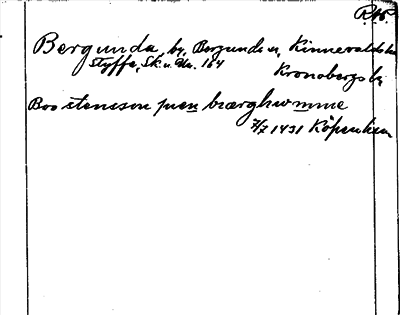 Bergunda, by, Bergunda sn, Kinnevalds hd
Styffe, Sk. u. Un. 164
Kronobergs l.
Boo stensson jwen bærghwmme
7/7 1431 Köpenhamn